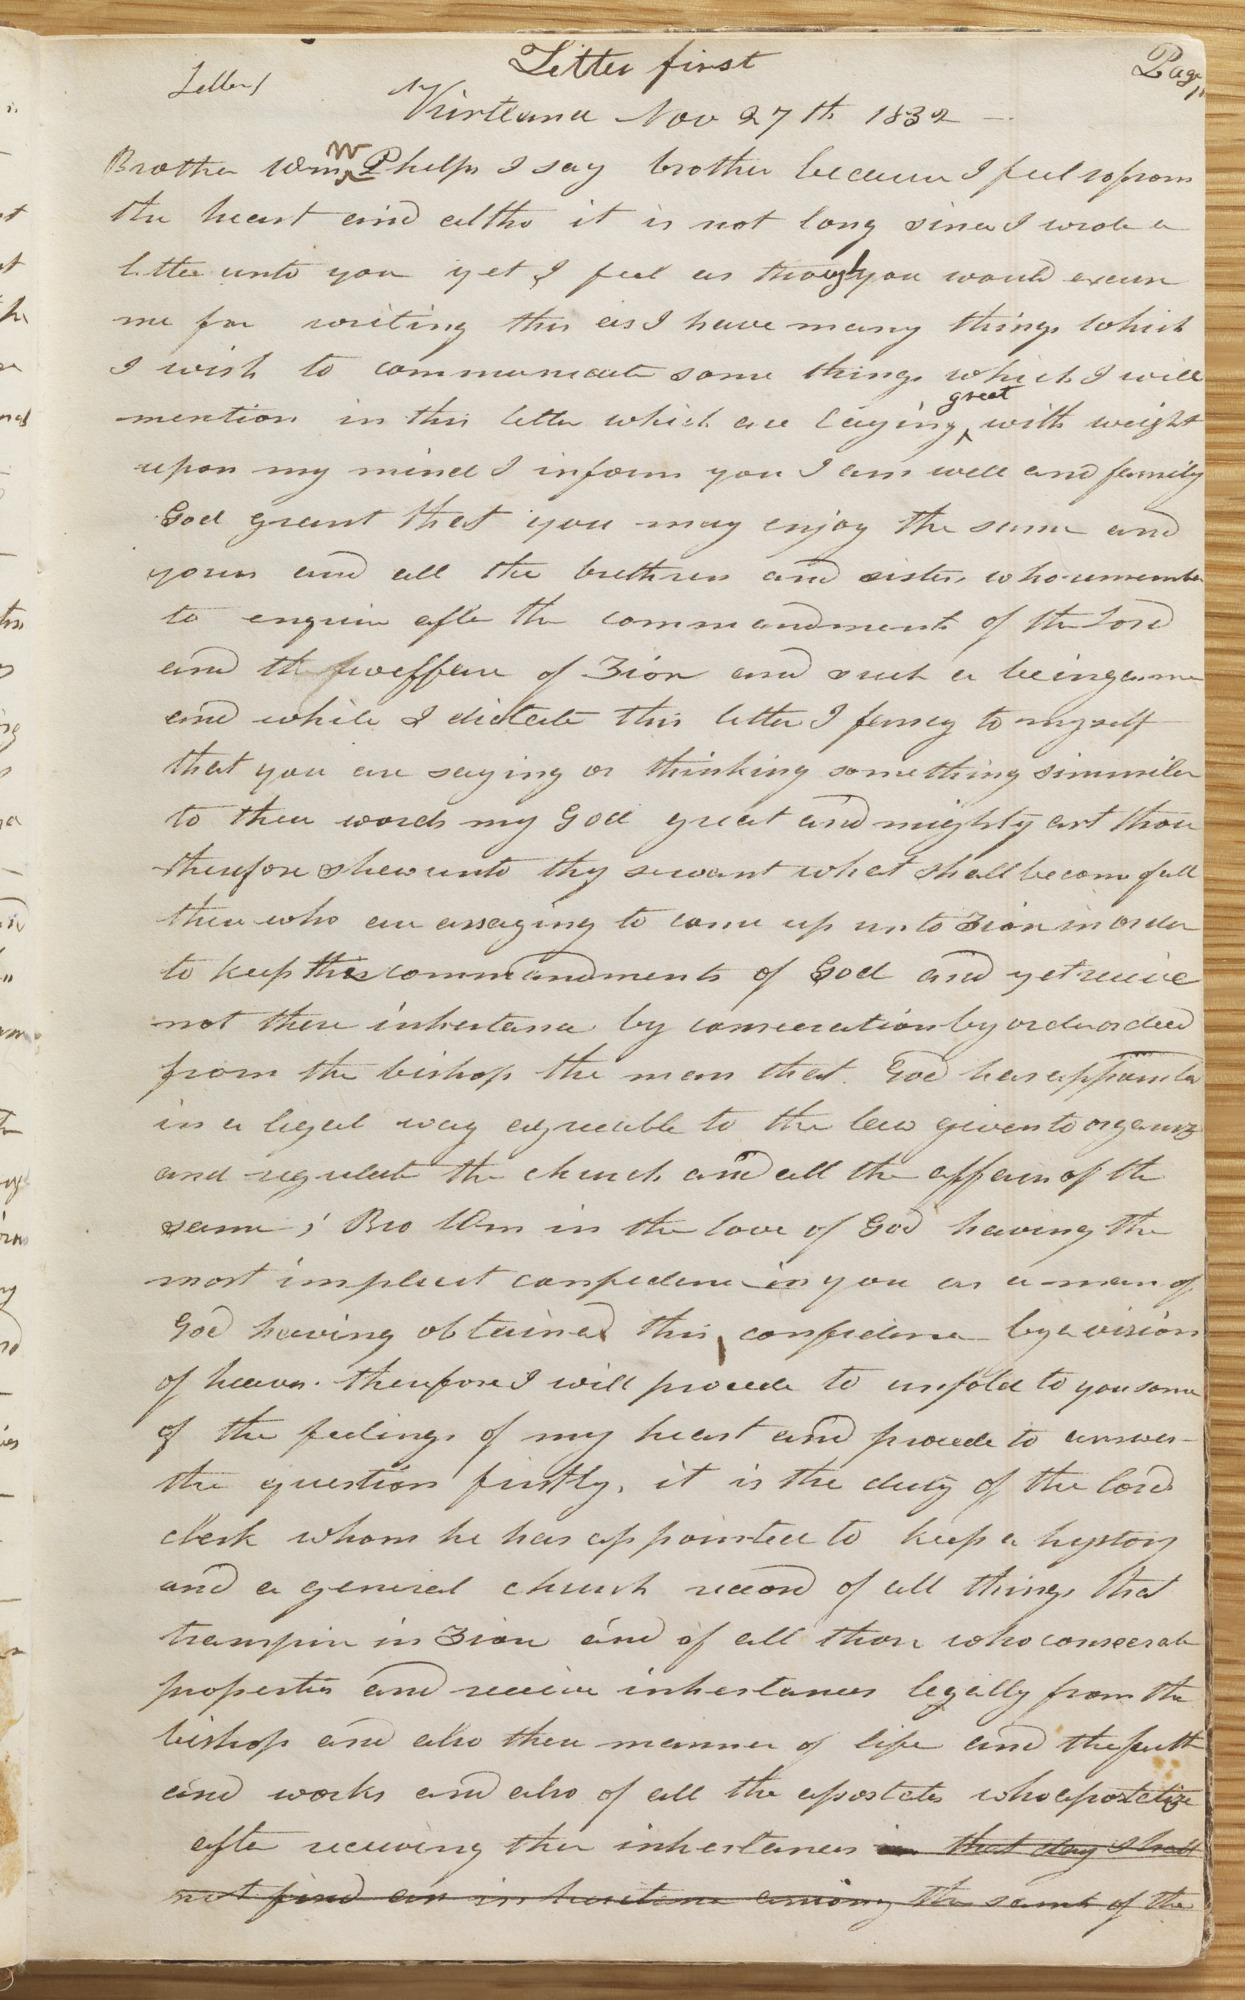 Letter first
Letters
Page 1
Kirtland Nov 27th 1832
Brother Wm W Phelps I say brother because I feel so from
the heart and altho it is not long since I wrote a
letter unto you yet I feel as though you would excuse
me for writing this as I have many things which
I wish to communicate some things which I will
mention in this letter which are laying great with weight
upon my mind I inform you I am well and family
God grant that you may enjoy the same and
yours and all the brethren and sisters who remember
to enquire after the commandments of the Lord
and the welfare of Zion and such a being as me
and while I dictate this letter I fancy to myself
that you are saying or thinking something simmiler
to these words my God great and mighty art thou
therefore shew unto thy servant what shall becom of all
these who are assaying to come up unto Zion in order
to keep the commandments of God and yet receive
not there inheritance by consecration by order or deed
from the bishop the man that God has appointed
in a legal way agreeable to the law given to organize
and regulate the church and all the affairs of the
same; Bro Wm in the love of God having the
most implicit confidence in you as a man of
God having obtained this confidence by a vision
of heaven. therefore I will procede to unfold to you some
of the feelings of my heart and procede to answer
the question firstly, it is the duty of the lord
clerk whom he has appointed to keep a hystory
and a general church record of all things that
transpire in Zion and of all those who consecrate
properties and receive inhertances legally from the
bishop and also there manner of life and the faith
and works and also of all the apostates who apostatize
after receiving ther inhertances in that day shall
not find an inheritance among the saints of the